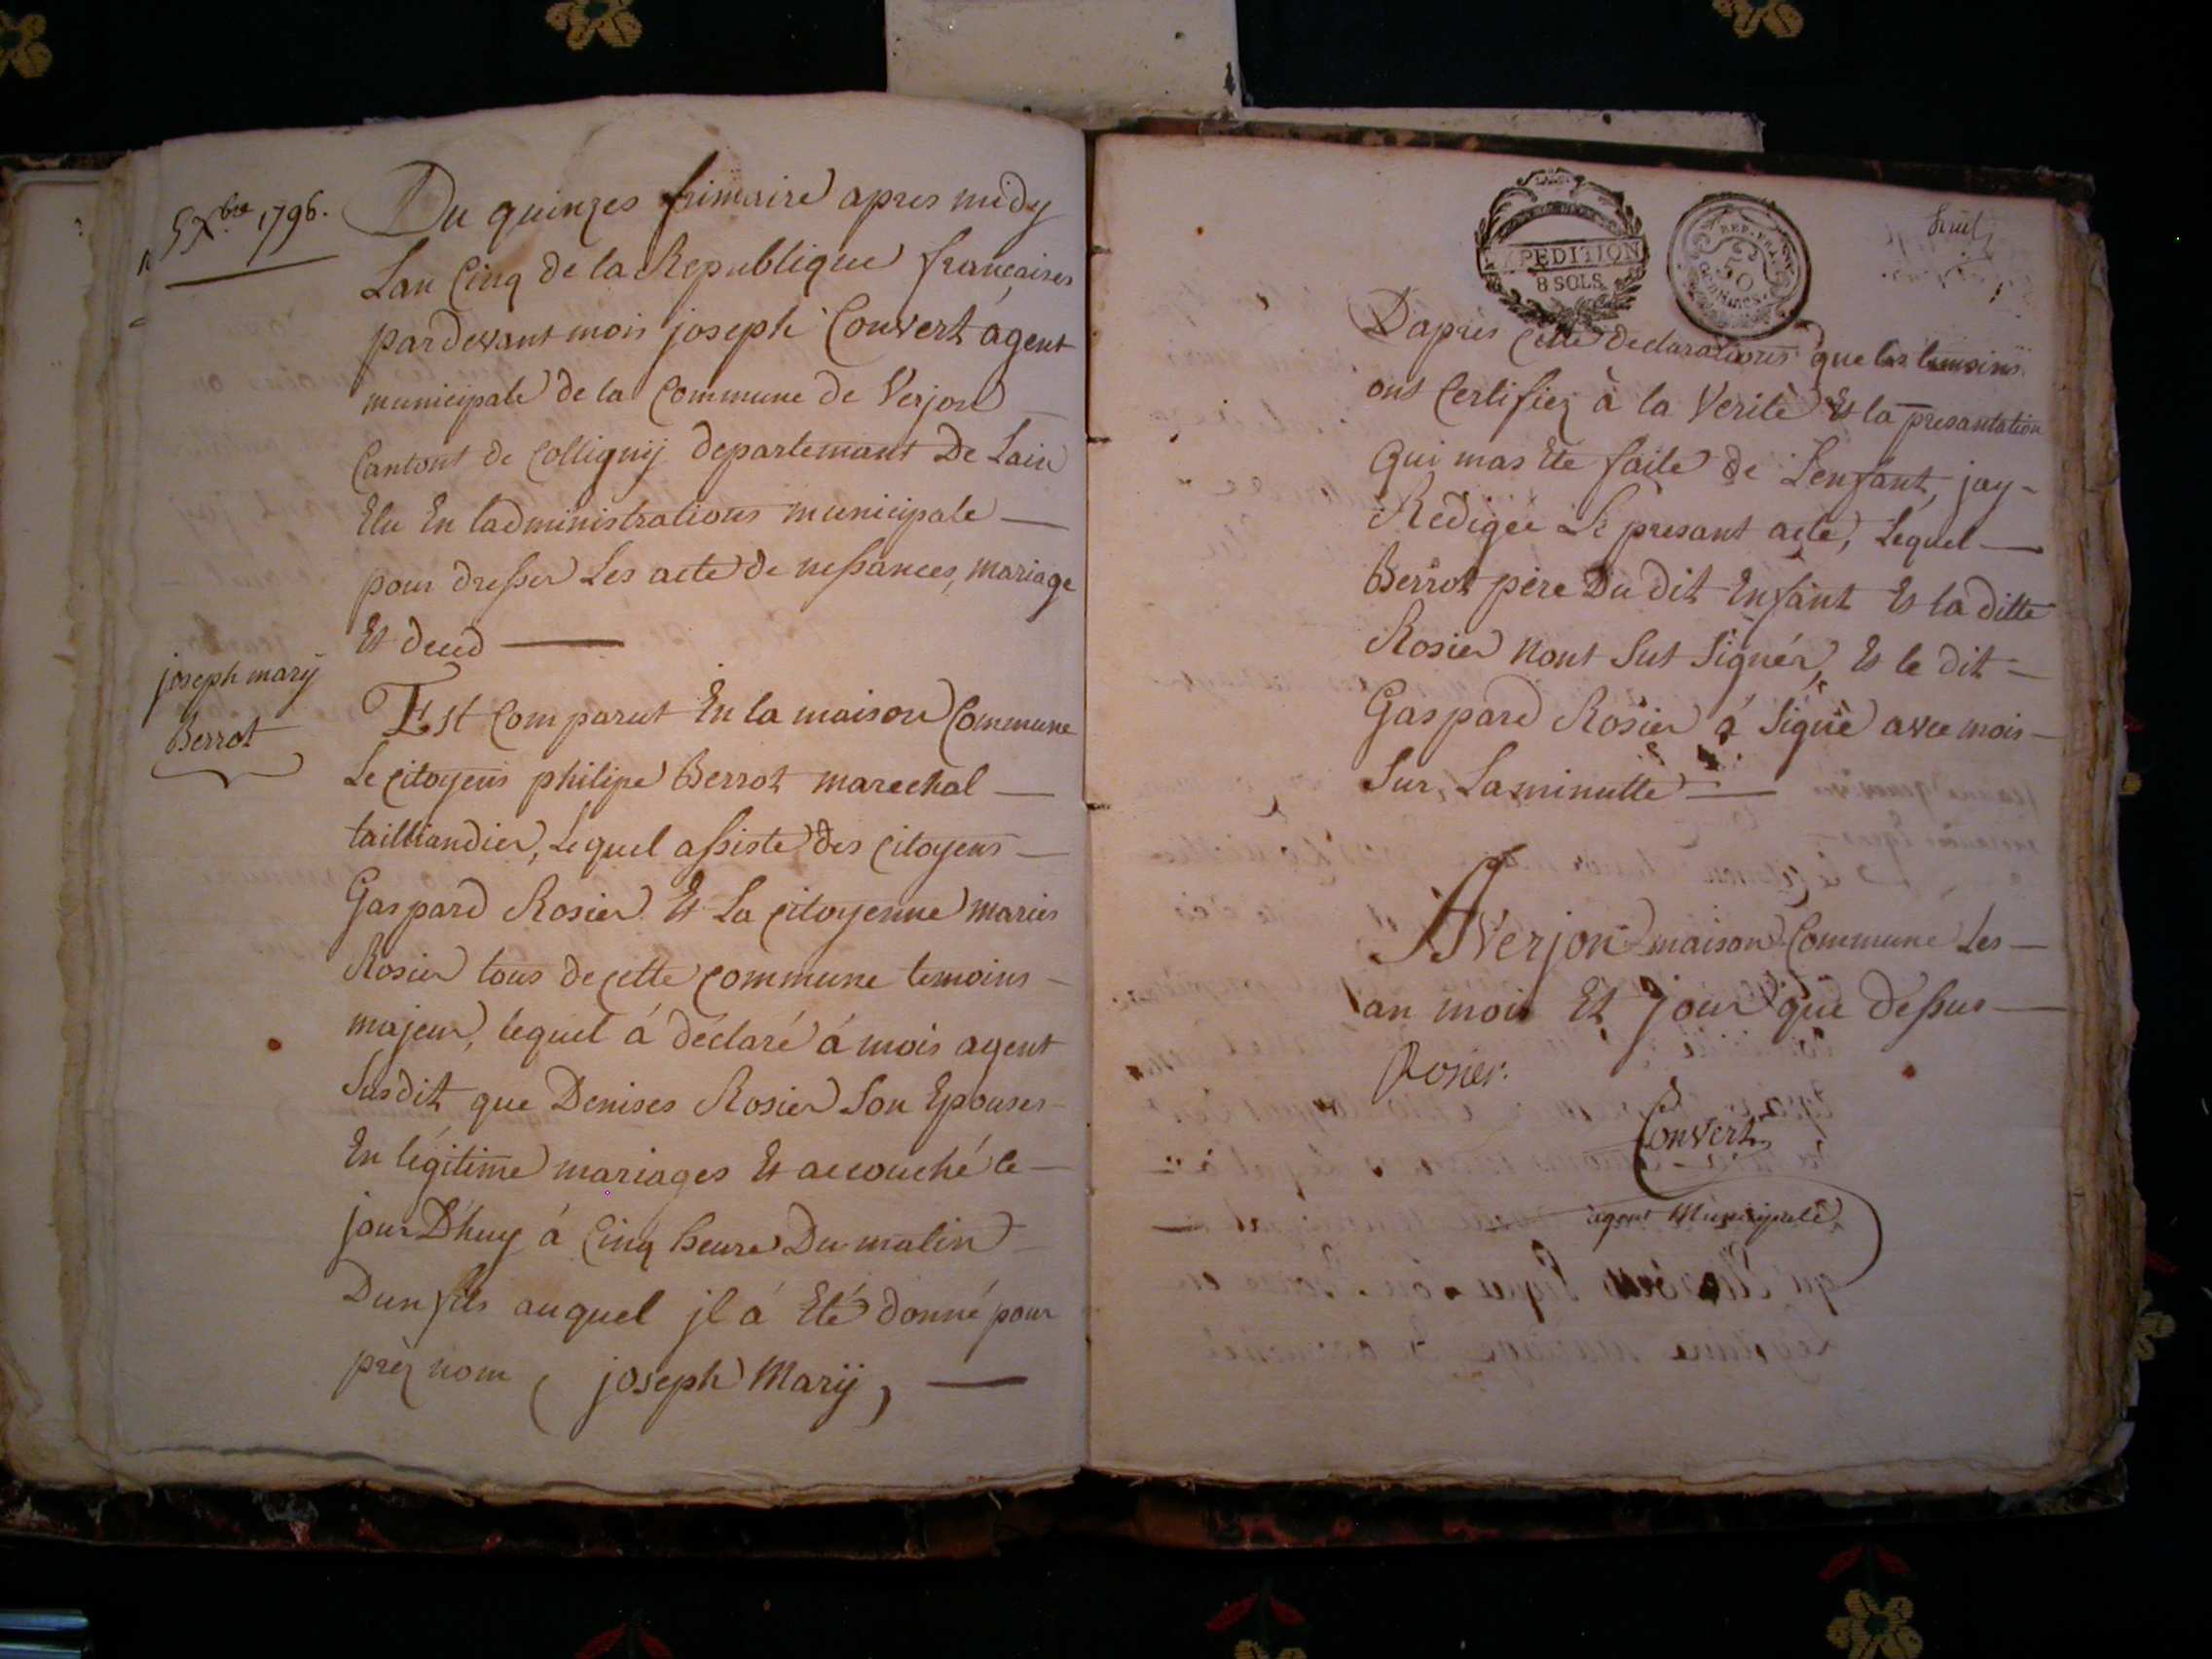 5 Xbre 1796.
Du quinzes frimaire apres midy
Lan Cinq de la Republique françaises
pardevant mois joseph Convert agent
municipale de la Commune de Verjon
Cantont de Collignij departemant De Lain
Elu En ladministrations municipale —
pour dresser Les acte de nessances, mariage
Et deced —
joseph marij
Berrot
Est Comparut En la maison Commune
Le Citoyens philipe Berrot marechal —
tailliandier, Lequel assiste des Citoyens —
Gaspard Rosier Et La Citoyenne maries
Rosier tous de cette Commune temoins —
majeur, lequel á déclaré á mois agent
Susdit que Denises Rosier Son Epouses —
En légitime mariages Et accouché le —
jour D'huy á Cinq heure Du matin —
Dun fils auquel jl á Eté donné pour
prez nom ( joseph Marij ) —
EXPEDITION
8 SOLS
REP. FRA.
50
Centimes.
huit
Dapres Cette declarations que les temoins
ont Certifiez à la Verité Et la presantation
qui mas Ete faite de Lenfant, jay —
Redigee Le presant acte, Lequel —
Berrot père Du dit Enfant Et la ditte
Rosier nont Sut Signér, Et le dit —
Gaspard Rosier á Signé avec mois —
Sur Laminutte —
A Verjon maison Commune Les —
an mois Et jour que dessus —
Rosier.
Convert
agent Municipale